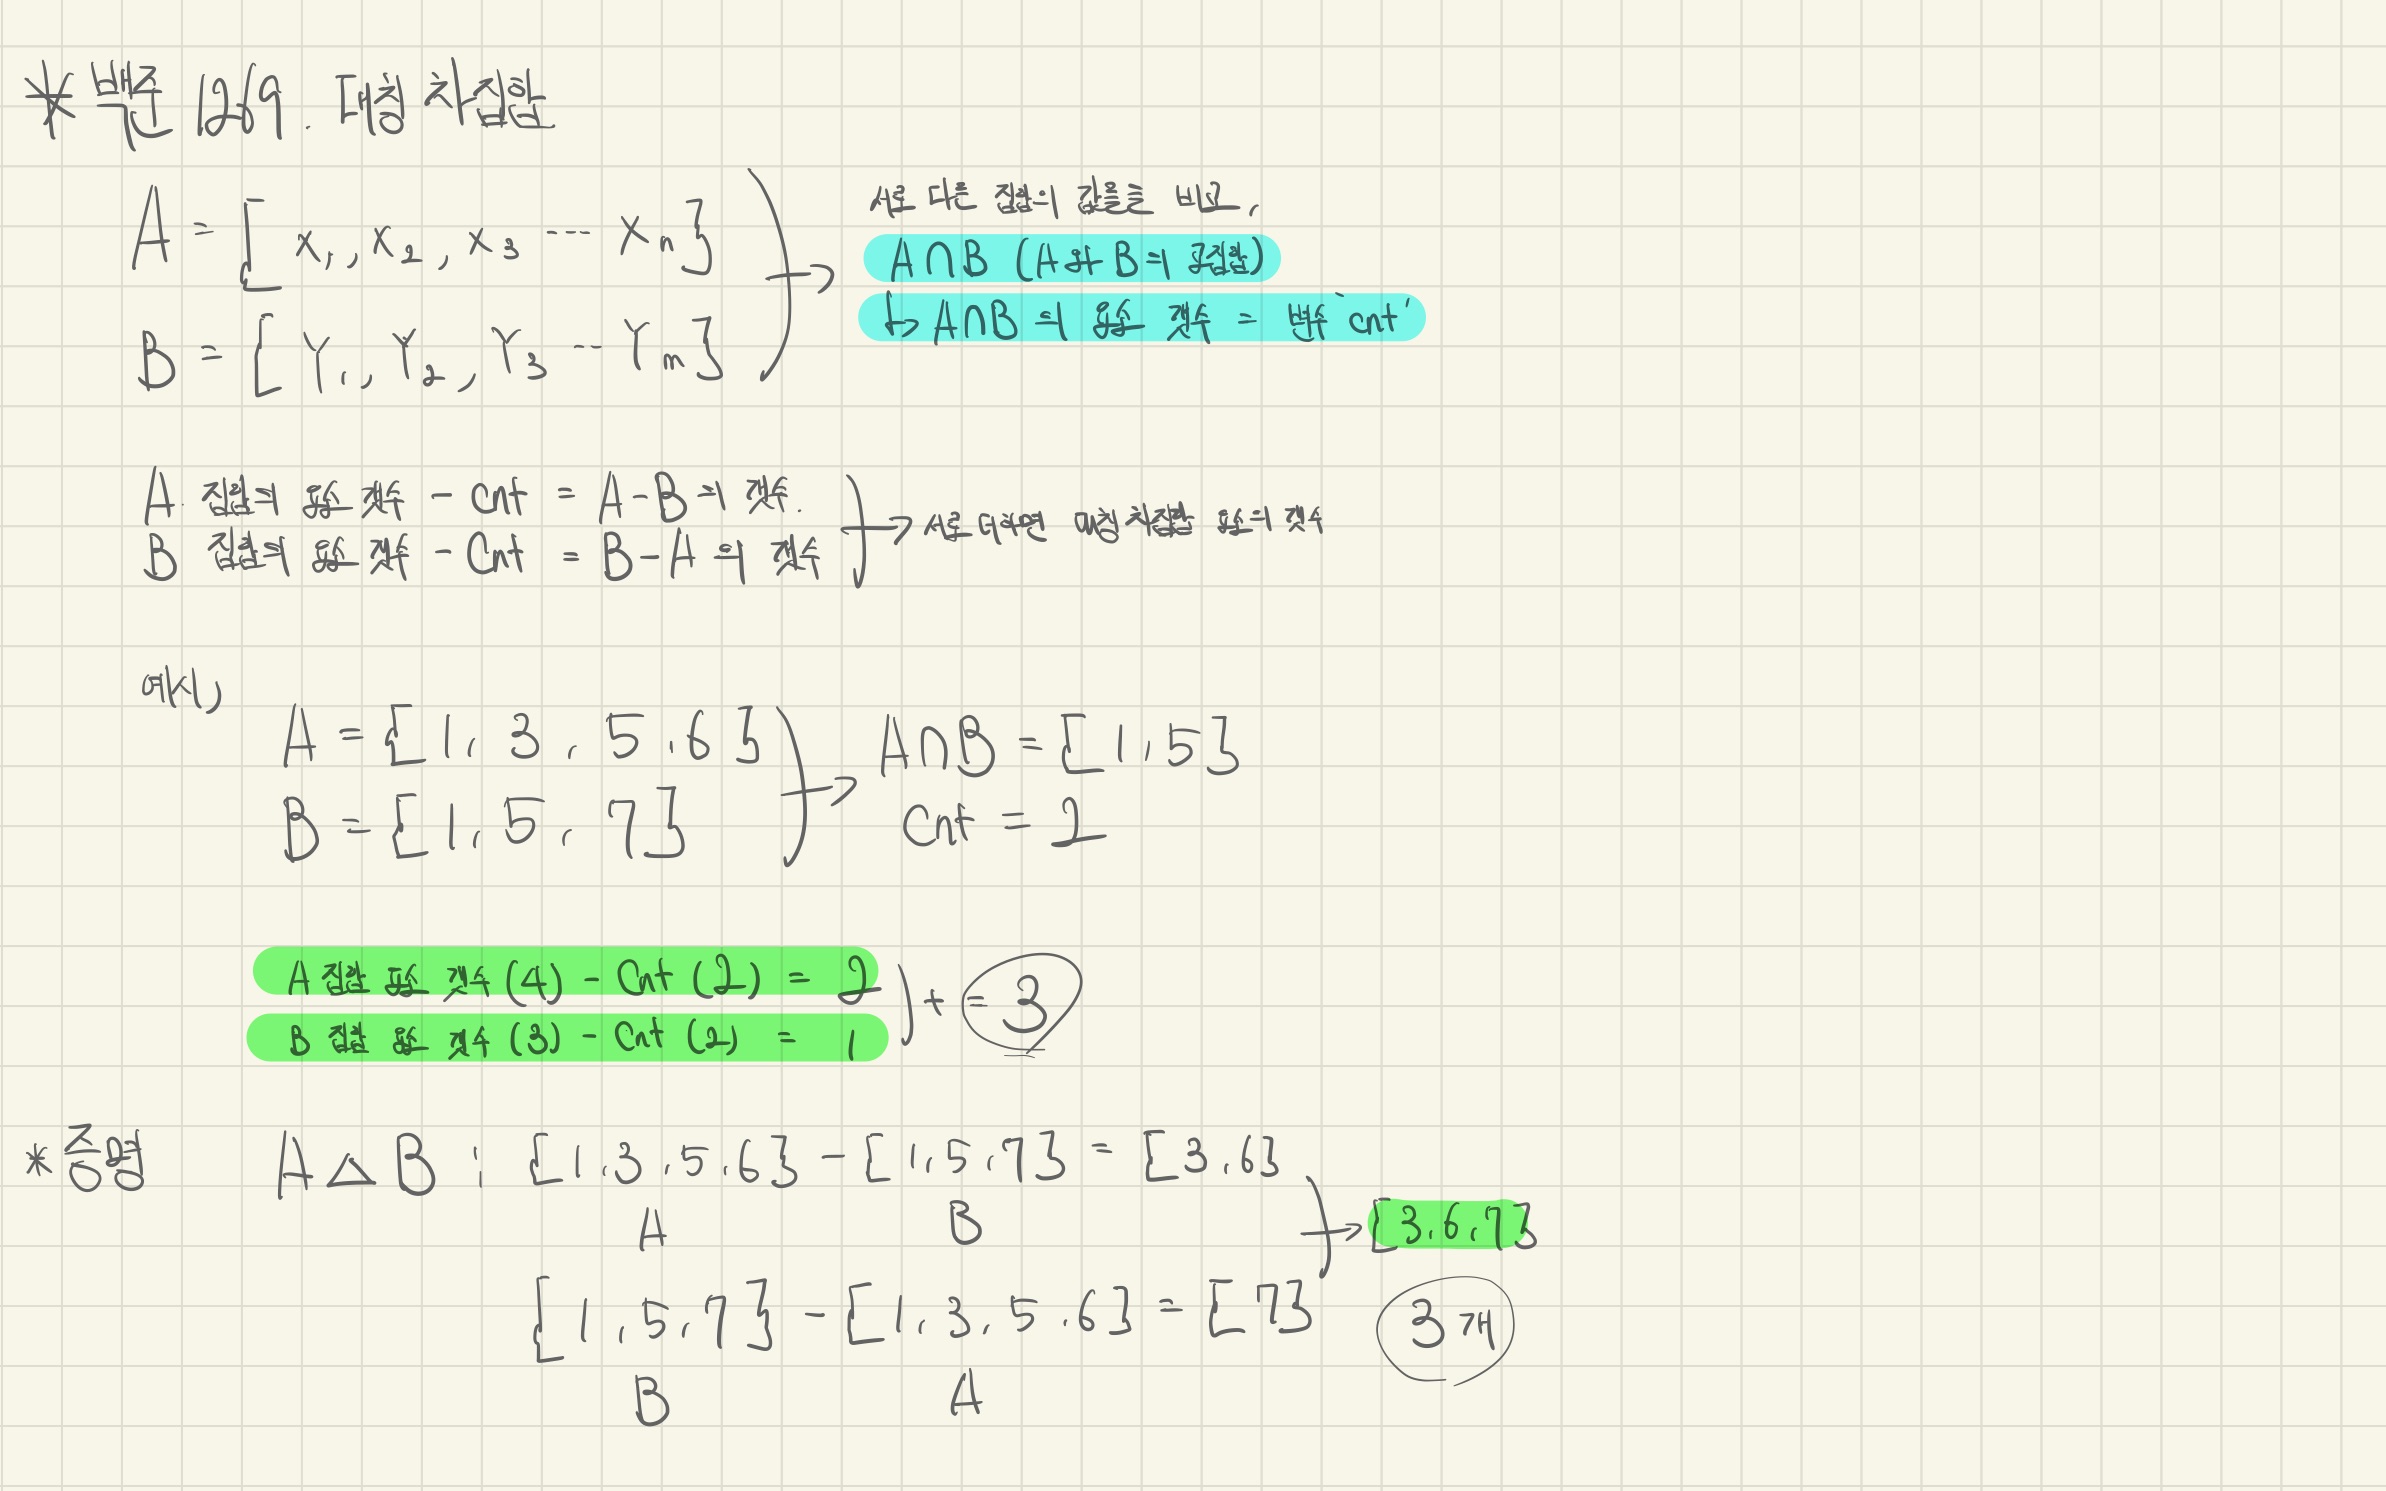 * 백준 1269. 대칭 차집합
A = [ x1, x2, x3 --- xn ]
B = [ Y1, Y2, Y3 --- Ym ]
서로 다른 집합의 값들을 비교,
A∩B (A와 B의 교집합)
↳ A∩B의 요소 갯수 = 변수 'cnt'
A 집합의 요소 갯수 - Cnt = A-B의 갯수.
B 집합의 요소 갯수 - Cnt = B-A의 갯수
→ 서로 더하면 대칭 차집합 요소의 갯수
예시)
A = [1, 3, 5, 6]
B = [1, 5, 7]
→ A∩B = [1, 5]
Cnt = 2
A 집합 요소 갯수 (4) - Cnt (2) = 2
B 집합 요소 갯수 (3) - Cnt (2) = 1
+ = 3
* 증명 A △ B : [1, 3, 5, 6] - [1, 5, 7] = [3, 6]
A B
→ [3, 6, 7]
[1, 5, 7] - [1, 3, 5, 6] = [7]
3개
B A